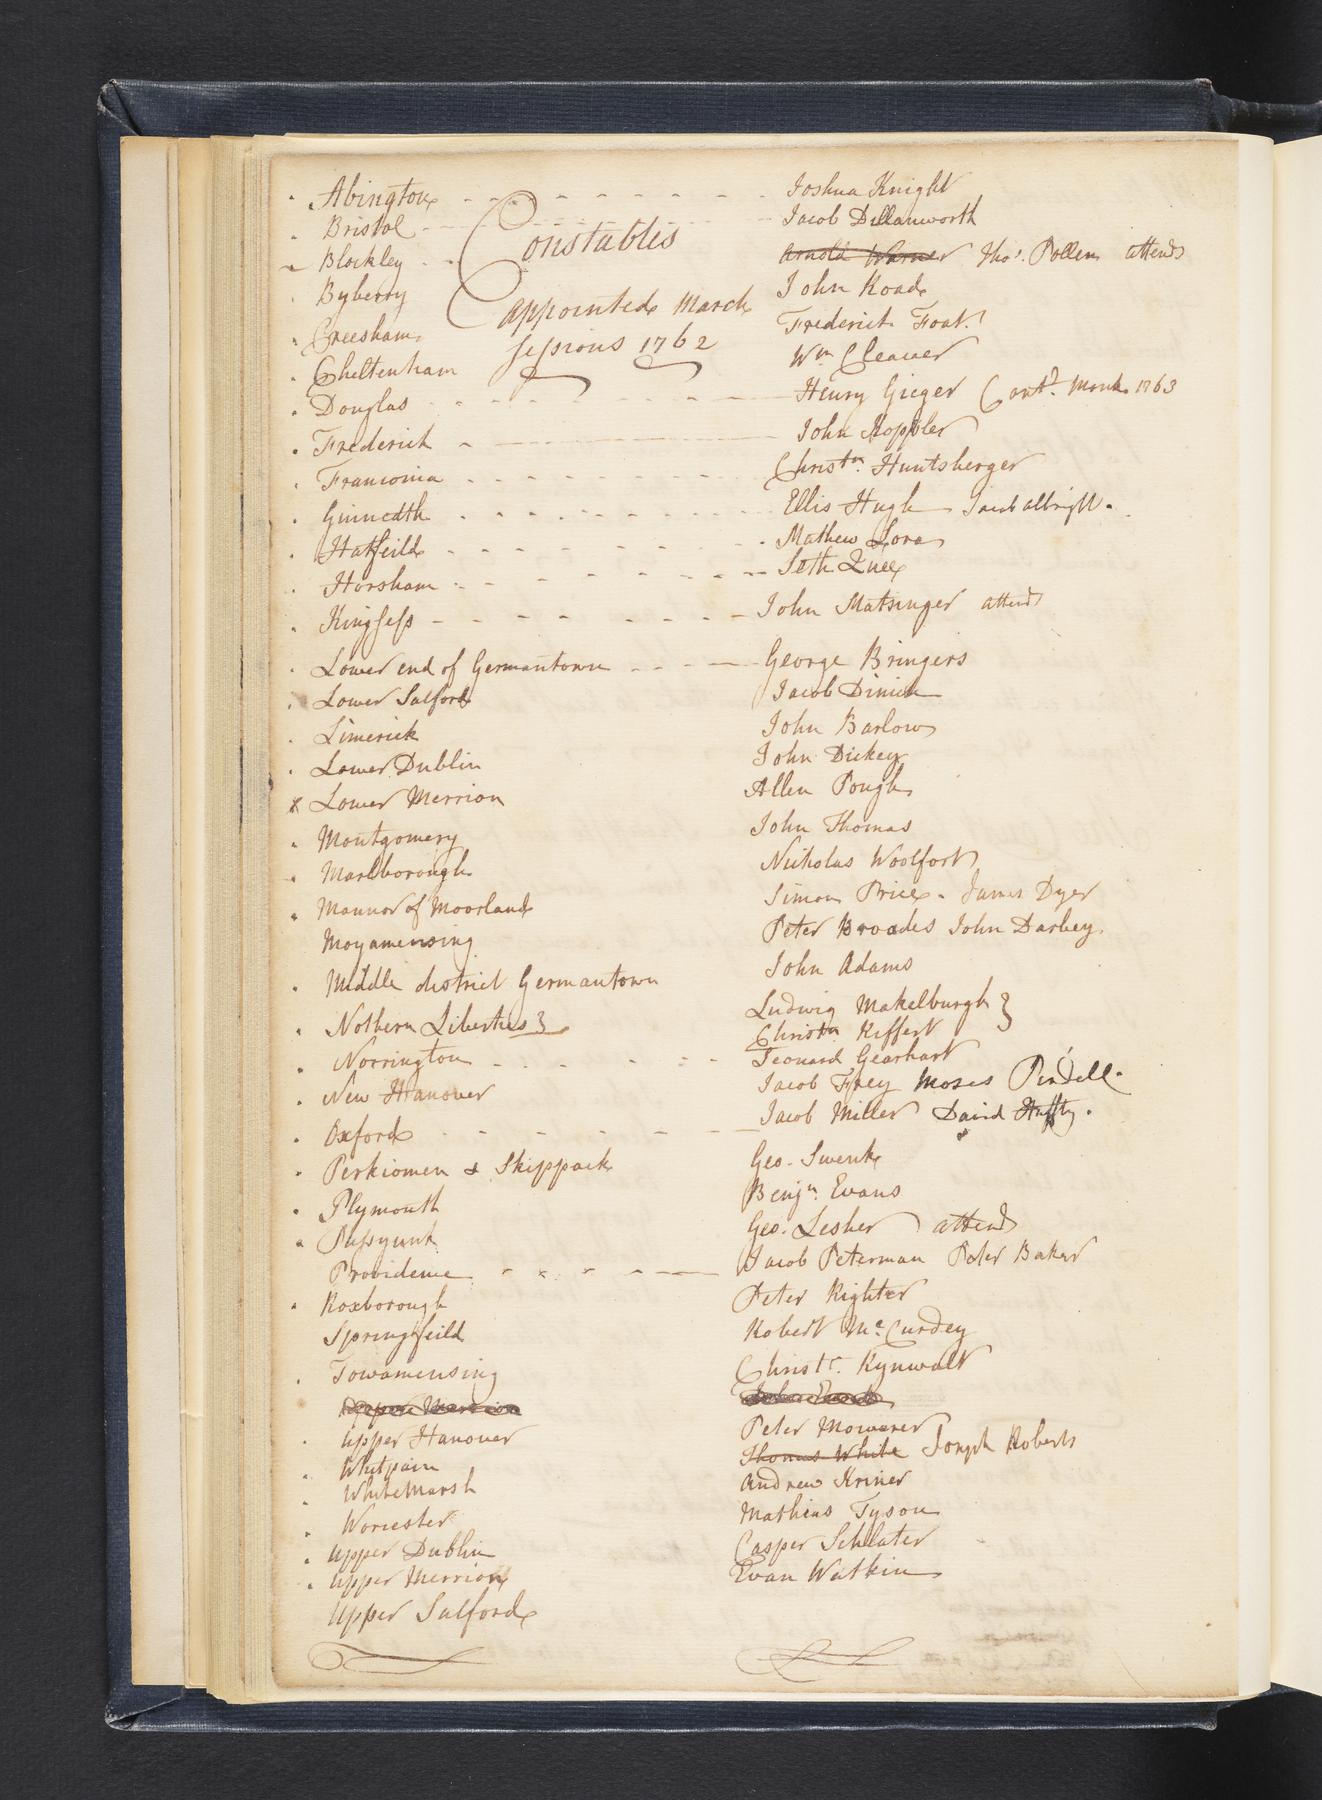 Abington Joshua Knight
Bristol Jacob Dillanworth
Constables
Blockley Arnold Warner Thos. Pollen attends
Byberry John Roads
appointed March
Creesham Frederick Foat.
Sessions 1762
Cheltenham Wm Cleaver
Douglas Henry Gieger Contd. March 1763
Frederick John Koppler
Franconia Christn. Huntsberger
Guinedth Ellis Hugh Jacob Albright.
Hatfeild Mathew Lora
Horsham Seth Quee
Kingsess John Matsinger attends
Lower end of Germantown George Bringers
Lower Salford Jacob Dinich
Limerick John Barlow
Lower Dublin John Dickey
x Lower Merrion Allen Pough
Montgomery John Thomas
Marlborough Nicholas Woolfort
Mannor of Moorland Simon Price. James Dyer
Moyamensing Peter Broades John Darbey
Middle district Germantown John Adams
Nothern Liberties } Ludwig Makelburgh }
Christn Kiffert
Norrington Leonard Gearhart
New Hanover Jacob Frey Moses Pindell.
Oxford Jacob Miller David Huffty.
Perkiomen & Skippack Geo. Swenk
Plymouth Benjn. Evans
Passyunk Geo. Lesher attends
Providence Jacob Peterman Peter Baker
Roxborough Peter Righter
Springfeild Robert Mc.Curdey
Towamensing Christr. Kynwalt
Upper Merrion
Upper Hanover Peter Mowerer
Whitpain Thomas White Joseph Roberts
WhiteMarsh Andrew Kriner
Worcester Mathias Tyson
Upper Dublin Casper Schlater
Upper Merrion Evan Watkin
Upper Salford